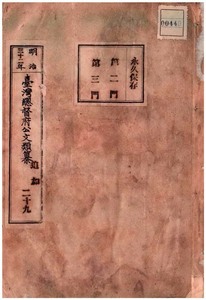 0044
永久保存
第二門
第三門
明治
三十一年
臺灣總督府公文類纂
追加
二十九